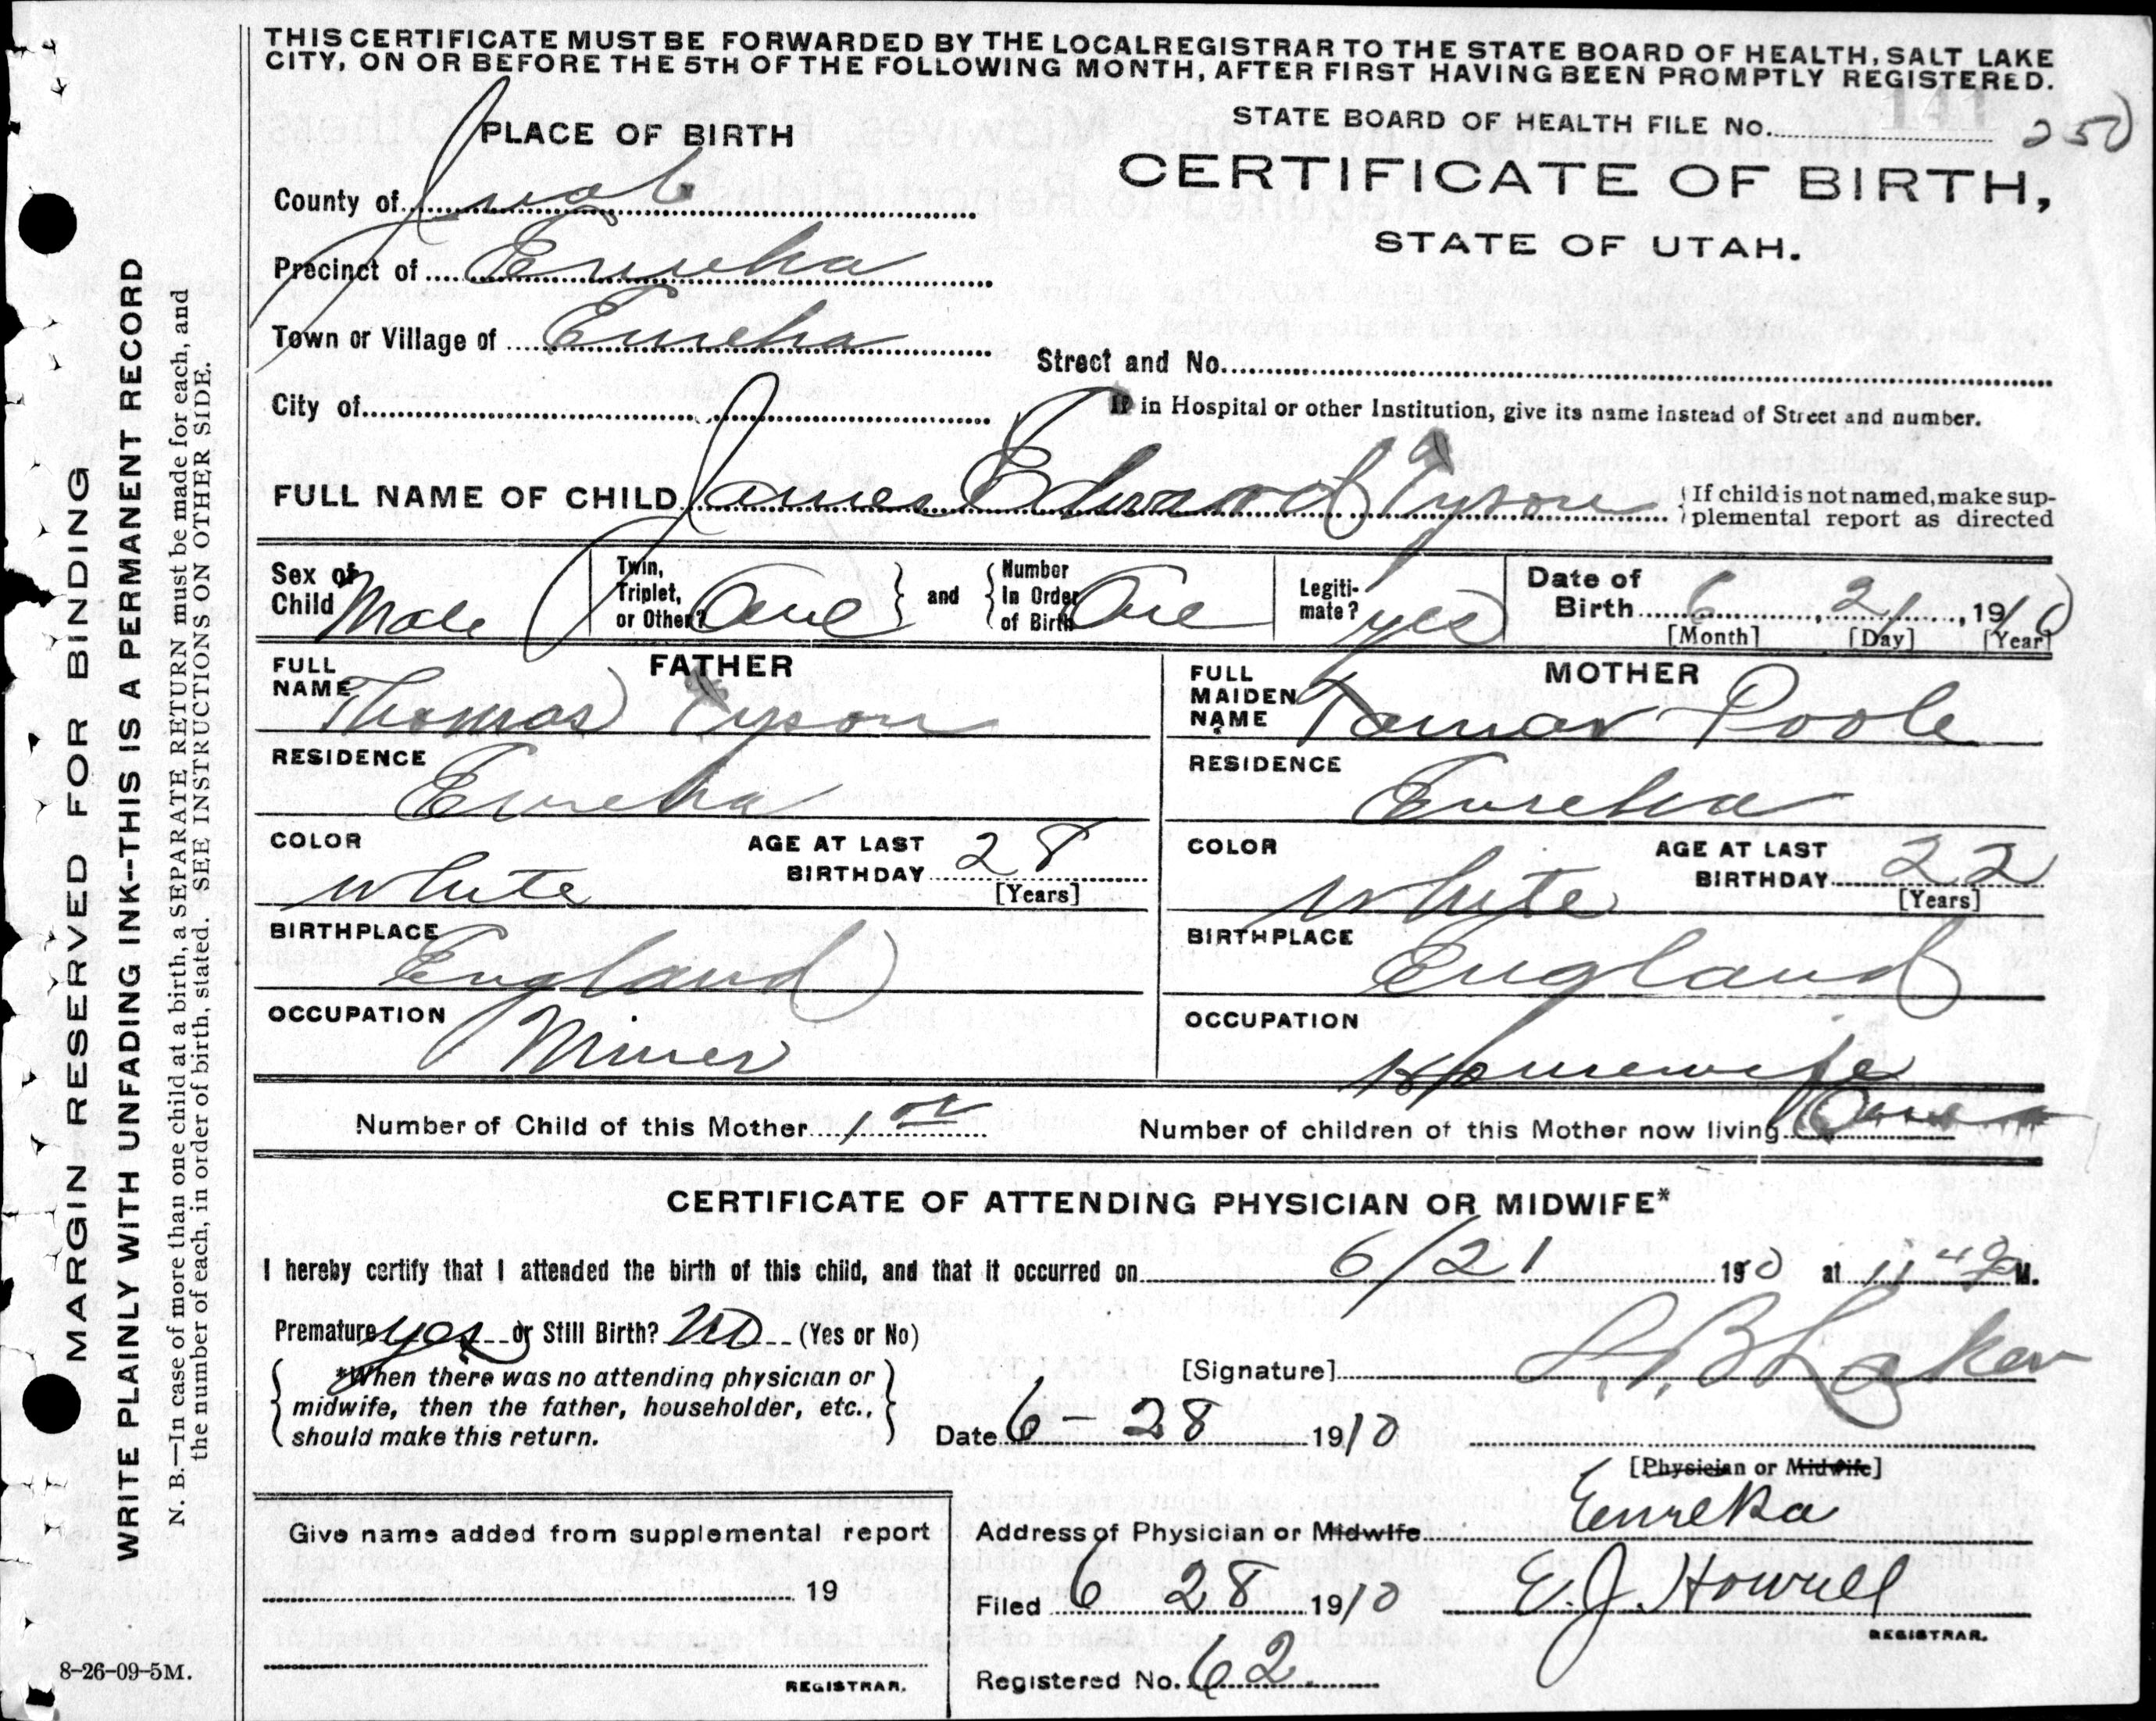 THIS CERTIFICATE MUST BE FORWARDED BY THE LOCAL REGISTRAR TO THE STATE BOARD OF HEALTH, SALT LAKE
CITY, ON OR BEFORE THE 5TH OF THE FOLLOWING MONTH, AFTER FIRST HAVING BEEN PROMPTLY REGISTERED.
STATE BOARD OF HEALTH FILE No. 141 250
PLACE OF BIRTH
CERTIFICATE OF BIRTH,
STATE OF UTAH.
County of Juab
Precinct of Eureka
Town or Village of Eureka
Street and No.
City of
If in Hospital or other Institution, give its name instead of Street and number.
FULL NAME OF CHILD James Edward Tyson
{If child is not named, make sup-
plemental report as directed
Sex of
Child Male
Twin,
Triplet,
or Other? One
} and {
Number
In Order
of Birth One
Legiti-
mate? yes
Date of
Birth 6, 21, 1910
[Month] [Day] [Year]
FATHER
FULL
NAME Thomas Tyson
RESIDENCE
Eureka
COLOR
White
AGE AT LAST
BIRTHDAY 28
[Years]
BIRTHPLACE
England
OCCUPATION
Miner
MOTHER
FULL
MAIDEN
NAME Tamar Poole
RESIDENCE
Eureka
COLOR
White
AGE AT LAST
BIRTHDAY 22
[Years]
BIRTHPLACE
England
OCCUPATION
Housewife
Number of Child of this Mother 1
Number of children of this Mother now living One
CERTIFICATE OF ATTENDING PHYSICIAN OR MIDWIFE*
I hereby certify that I attended the birth of this child, and that it occurred on 6/21 1910 at 11 M.
Premature yes or Still Birth? No (Yes or No)
*When there was no attending physician or
midwife, then the father, householder, etc.,
should make this return.
[Signature] Laker
Date 6-28 1910
[Physician or Midwife]
Address of Physician or Midwife Eureka
Filed 6 28 1910 E. J. Howell
REGISTRAR.
Registered No. 62
Give name added from supplemental report
19
REGISTRAR.
MARGIN RESERVED FOR BINDING
WRITE PLAINLY WITH UNFADING INK--THIS IS A PERMANENT RECORD
N. B.—In case of more than one child at a birth, a SEPARATE RETURN must be made for each, and
the number of each, in order of birth, stated. SEE INSTRUCTIONS ON OTHER SIDE.
8-26-09-5M.